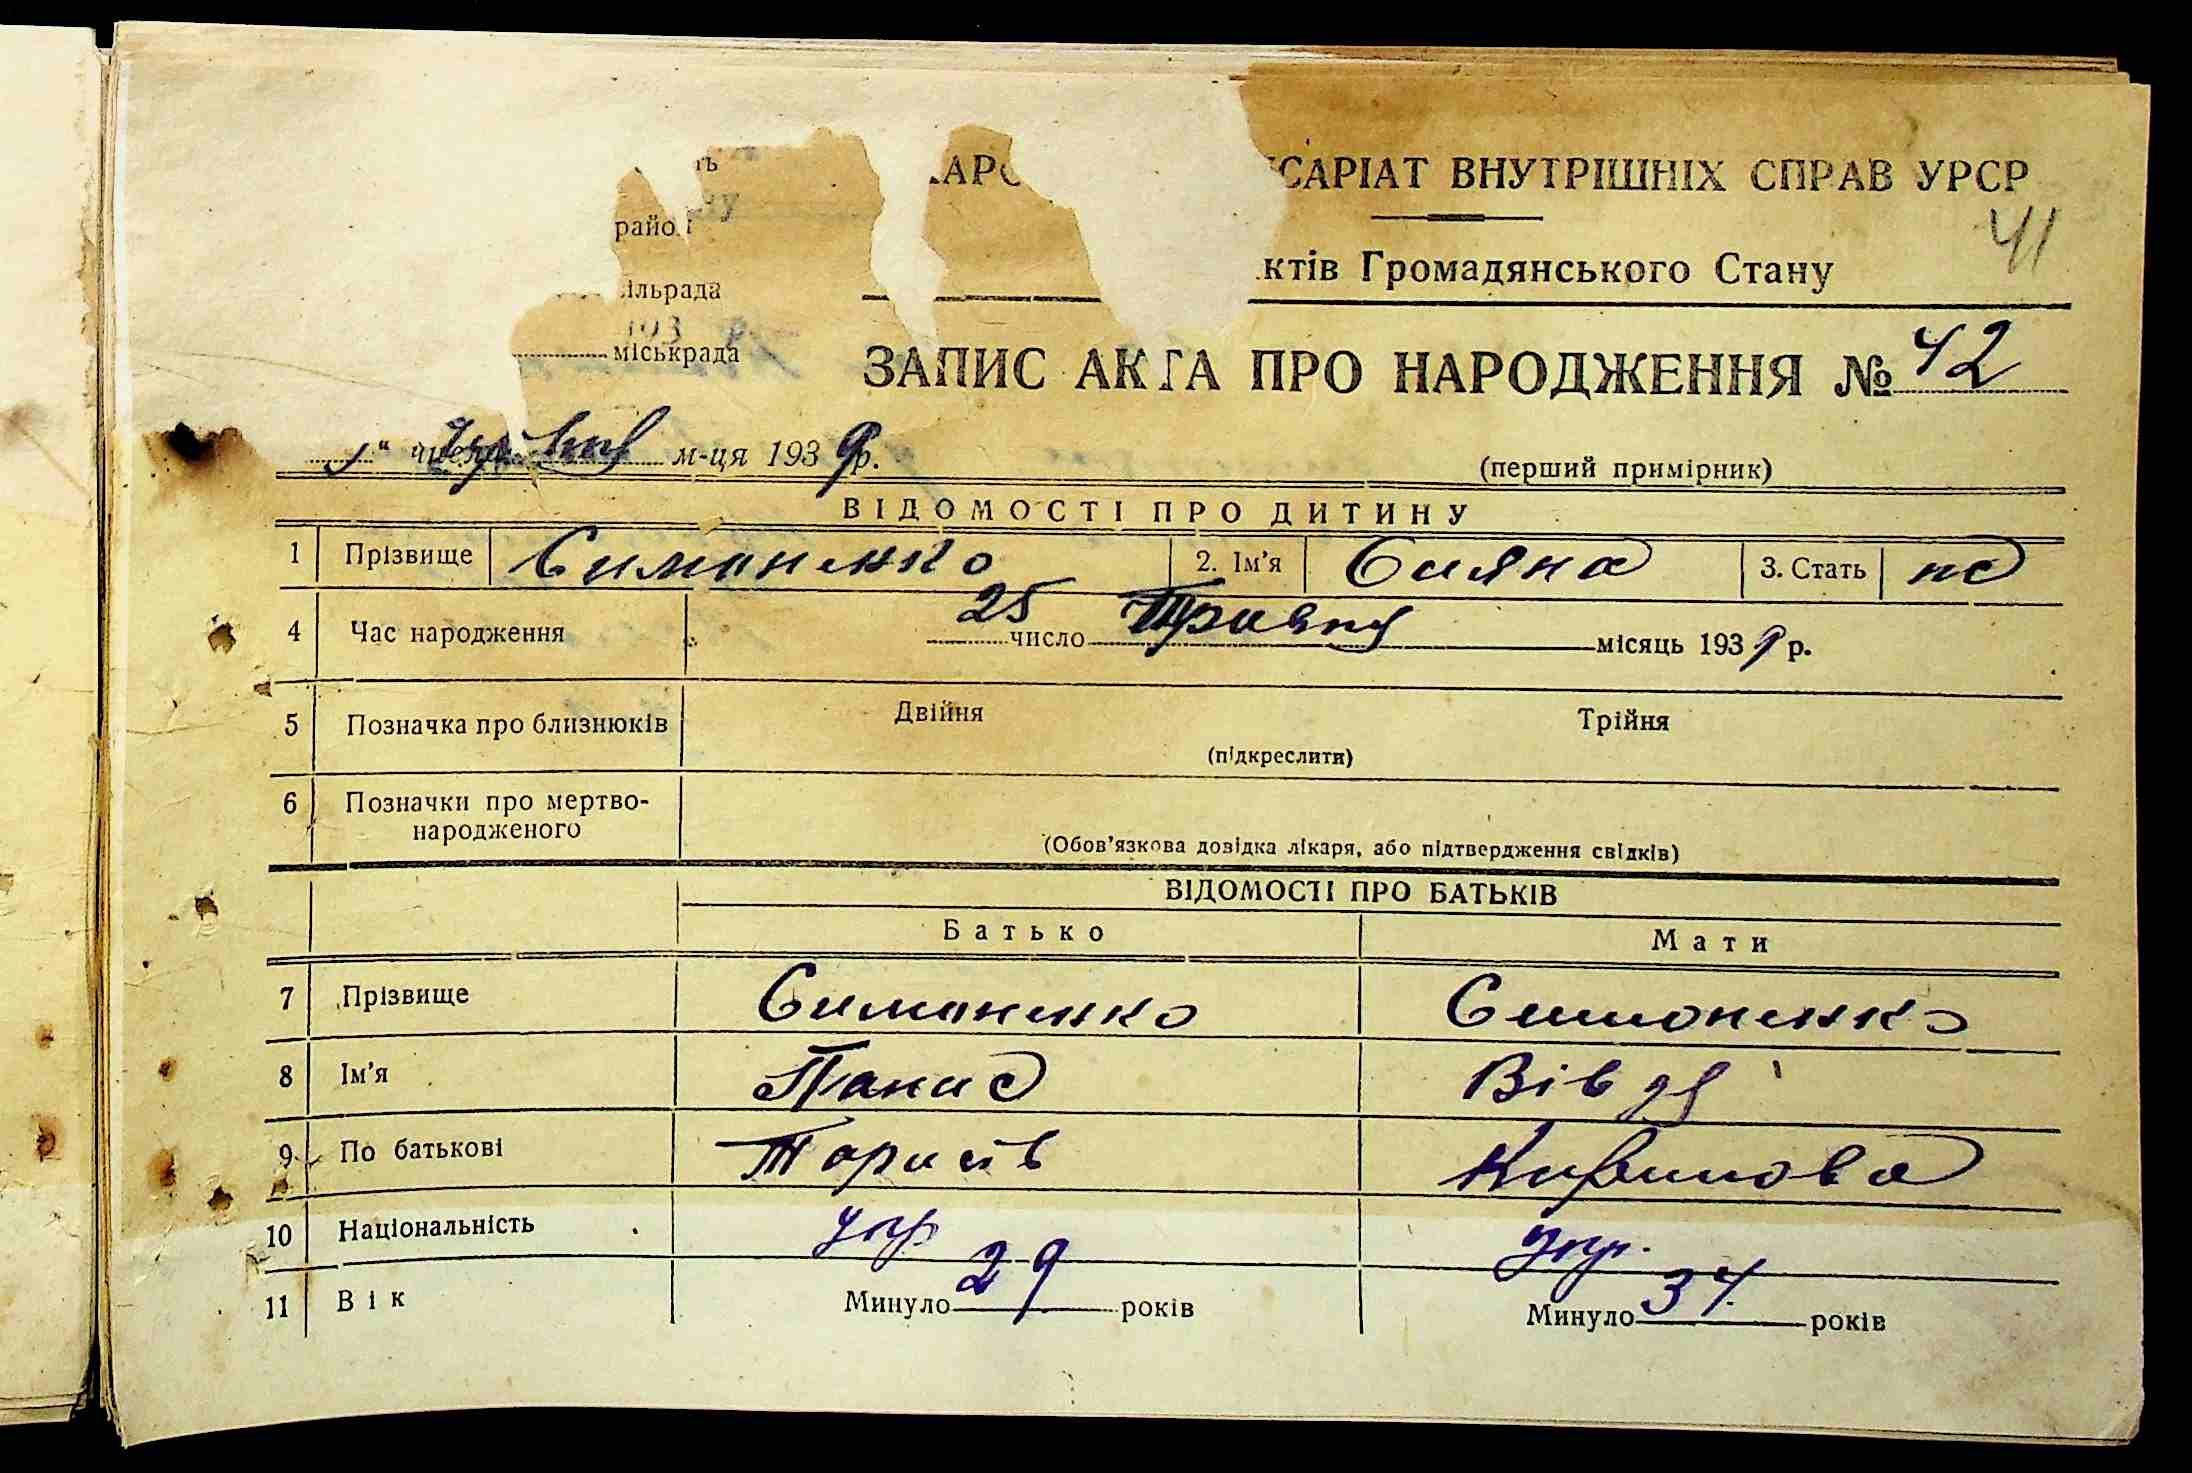 ІСАРІАТ ВНУТРІШНІХ СПРАВ УРСР
41
район
ктів Громадянського Стану
ільрада
міськрада
ЗАПИС АКТА ПРО НАРОДЖЕННЯ № 42
м-ця 1939 р.
(перший примірник)
ВІДОМОСТІ ПРО ДИТИНУ
1 Прізвище Симоненко 2. Ім'я 3. Стать
4 Час народження 25 число Травня місяць 1939 р.
5 Позначка про близнюків Двійня Трійня
(підкреслити)
6 Позначки про мертво-
народженого
(Обов'язкова довідка лікаря, або підтвердження свідків)
ВІДОМОСТІ ПРО БАТЬКІВ
Батько Мати
7 Прізвище Симоненко Симоненко
8 Ім'я Панас Вівдя
9 По батькові
10 Національність укр укр.
11 Вік Минуло 29 років Минуло 34 років